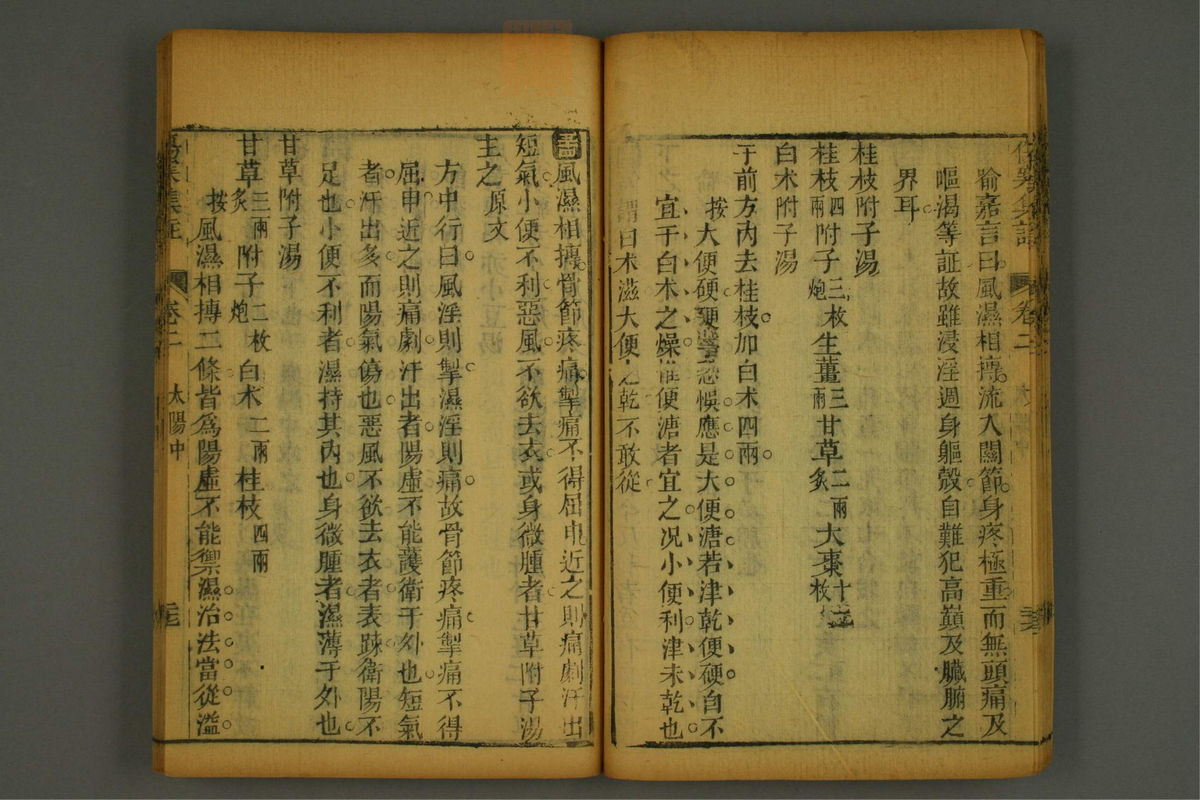 喻嘉言曰風濕相搏流入關節身疼極重而無頭痛及
嘔渴等証故雖浸淫週身軀殼自難犯高巔及臟腑之
界耳
桂枝附子湯
桂枝四兩附子三枚炮生薑三兩甘草二兩炙大棗十二枚
白术附子湯
于前方內去桂枝加白术四兩
按大便硬硬字恐悞應是大便溏若津乾便硬自不
宜于白术之燥惟便溏者宜之况小便利津未乾也
曰术滋大便之乾不敢從
風濕相搏骨節疼痛掣痛不得屈申近之則痛劇汗出
短氣小便不利惡風不欲去衣或身微腫者甘草附子湯
主之原文
方中行曰風淫則掣濕淫則痛故骨節疼痛掣痛不得
屈申近之則痛劇汗出者陽虛不能護衛于外也短氣
者汗出多而陽氣傷也惡風不欲去衣者表疎衛陽不
足也小便不利者濕持其內也身微腫者濕薄于外也
甘草附子湯
甘草三兩炙附子二枚炮白术二兩桂枝四兩
按風濕相摶二條皆爲陽虛不能禦濕治法當從溫
卷二 太陽中